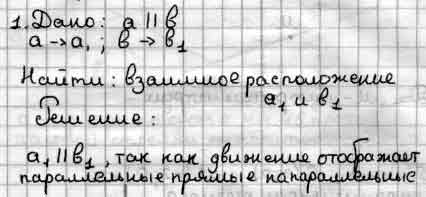 1. Дано: a || b
a → a₁ ; b → b₁
Найти: взаимное расположение
a₁ и b₁
Решение:
a₁ || b₁, так как движение отображает
параллельные прямые на параллельные